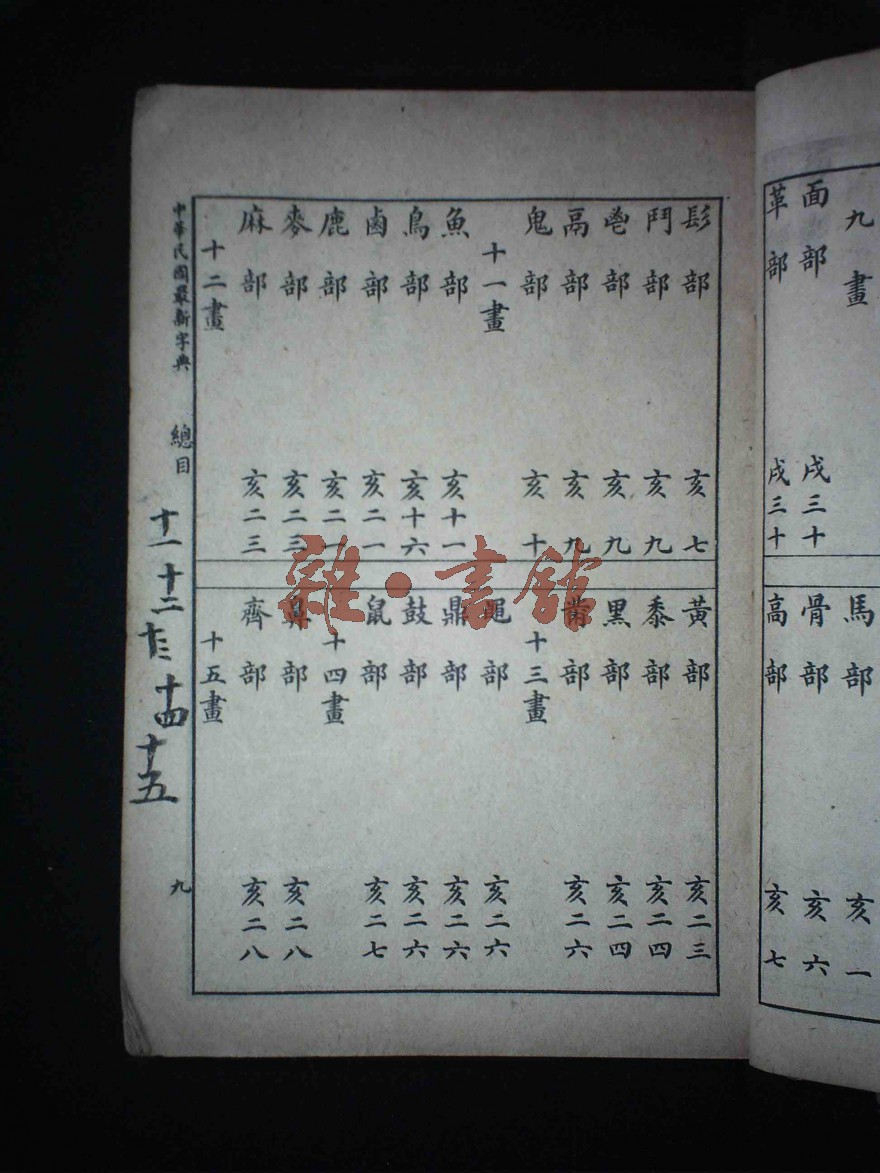 九畫
面部 戌三十
革部 戌三十
馬部 亥一
骨部 亥六
高部 亥七
髟部 亥七
鬥部 亥九
鬯部 亥九
鬲部 亥九
鬼部 亥十
十一畫
魚部 亥十一
鳥部 亥十六
鹵部 亥二一
鹿部 亥二一
麥部 亥二三
麻部 亥二三
十二畫
黃部 亥二三
黍部 亥二四
黑部 亥二四
黹部 亥二六
十三畫
黽部 亥二六
鼎部 亥二六
鼓部 亥二六
鼠部 亥二七
十四畫
鼻部 亥二八
齊部 亥二八
十五畫
中華民國最新字典 總目
九
十一 十二 十三 十四 十五
雜·書館